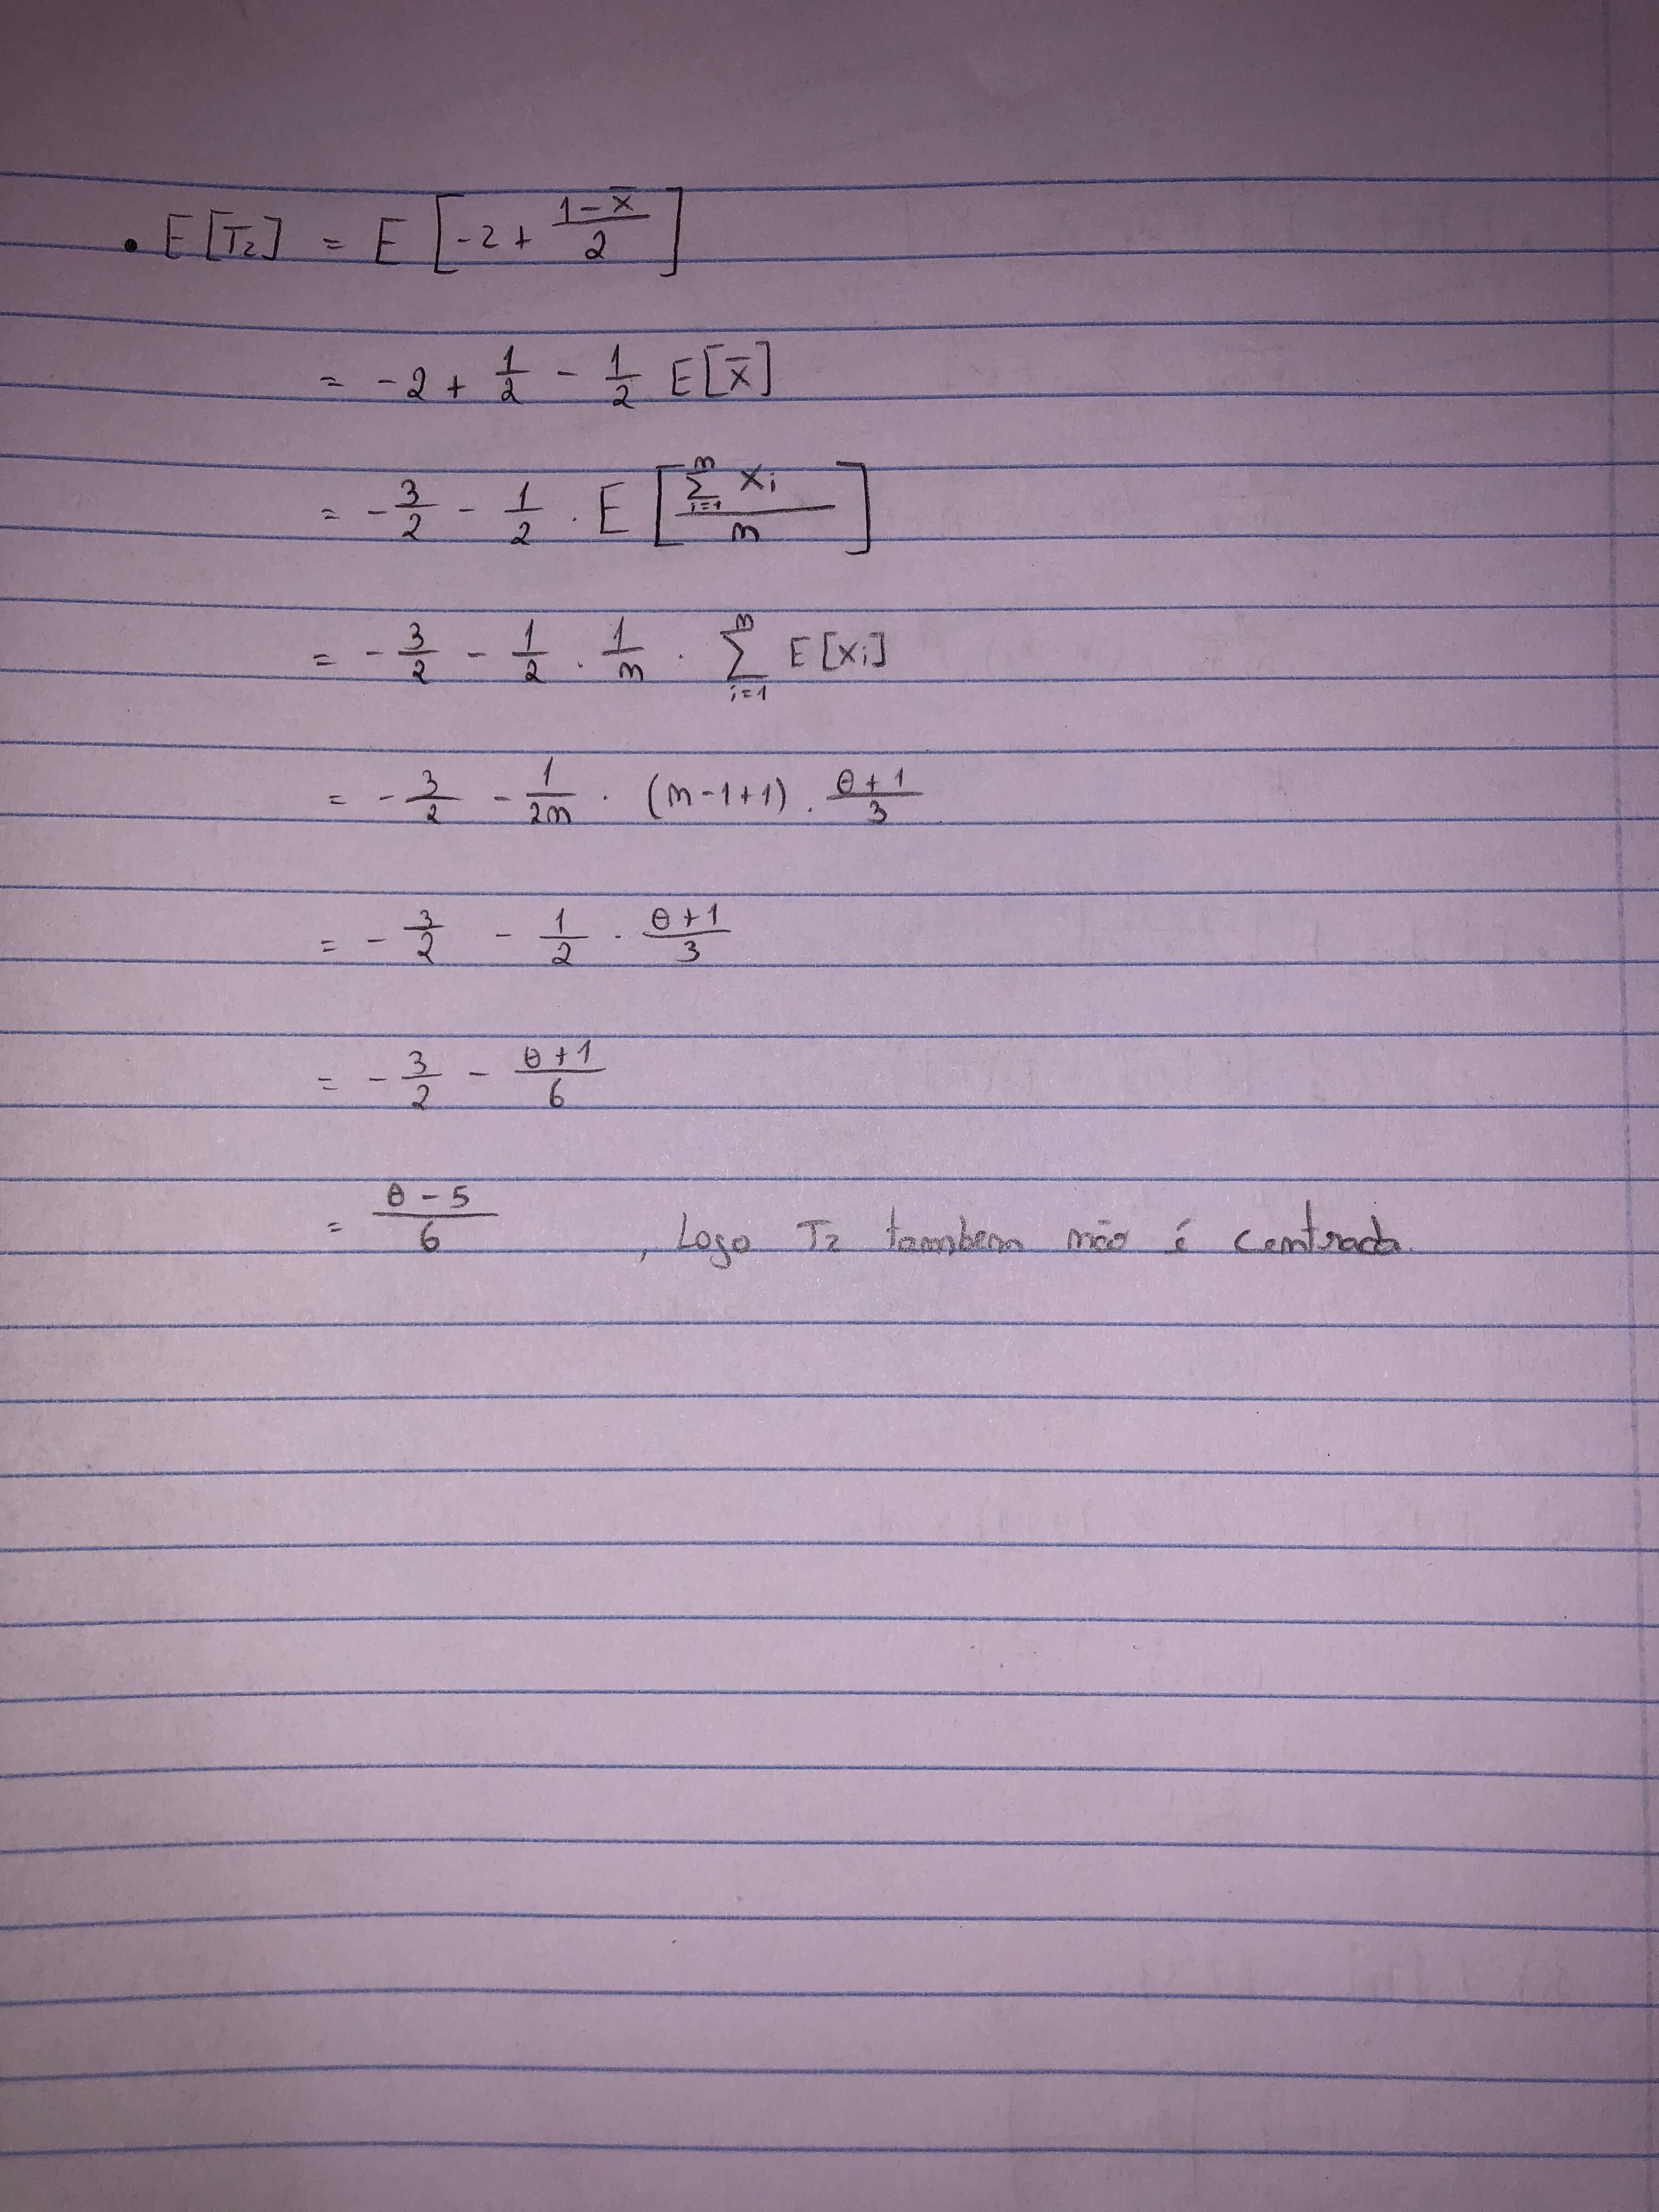 • E[T₂] = E [-2 + (1-x̄)/2]
= -2 + 1/2 - 1/2 E[x̄]
= -3/2 - 1/2 . E [∑ᵢ₌₁ⁿ xᵢ / n]
= -3/2 - 1/2 . 1/n . ∑ᵢ₌₁ⁿ E[xᵢ]
= -3/2 - 1/2n . (n-1+1) . (θ+1)/3
= -3/2 - 1/2 . (θ+1)/3
= -3/2 - (θ+1)/6
= (θ-5)/6 , Logo T₂ tambem não é centrada.